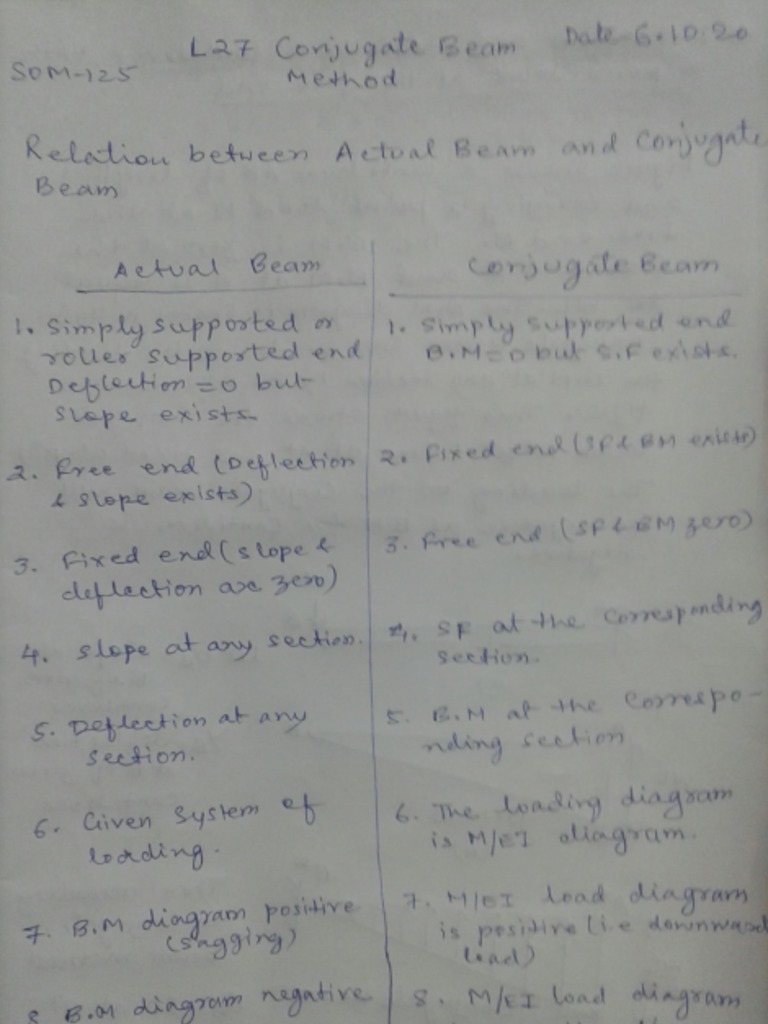 L27 Conjugate Beam Date 6.10.20
SOM-125 Method
Relation between Actual Beam and Conjugate
Beam
Actual Beam
1. Simply supported or
roller supported end
Deflection = 0 but
slope exists
2. Free end (Deflection
& slope exists)
3. Fixed end (slope &
deflection are zero)
4. Slope at any section.
5. Deflection at any
section.
6. Given system of
loading.
7. B.M diagram positive
(sagging)
8 B.M diagram negative
Conjugate Beam
1. Simply supported end
B.M = 0 but S.F exists.
2. Fixed end (SF & BM exists)
3. Free end (SF & BM zero)
4. SF at the corresponding
section.
5. B.M at the correspo-
nding section
6. The loading diagram
is M/EI diagram.
7. M/EI load diagram
is positive (i.e downward
load)
8. M/EI load diagram